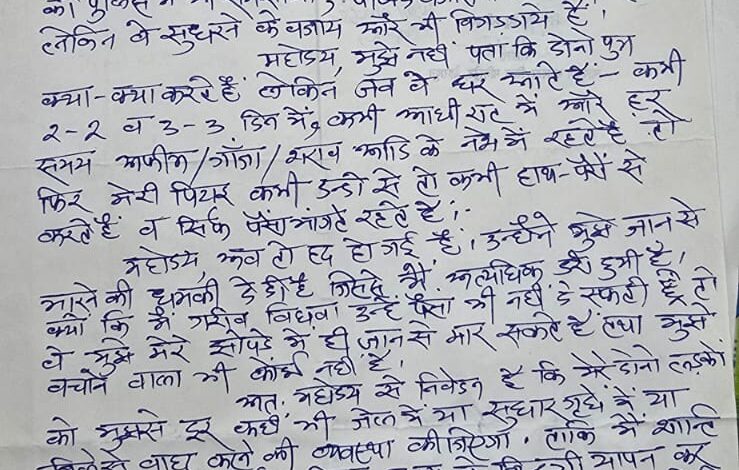 को पुलिस में भी
लेकिन वे सुधरने के वजाय और भी बिगड़ गये हैं।
महोदय, मुझे नहीं पता कि दोनो पुत्र
क्या-क्या करते हैं लेकिन जव वे घर आते हैं - कभी
2-2 व 3-3 दिन में, कभी आधी रात में और हर
समय अफीम/गाँजा/शराव आदि के नशे में रहते है तो
फिर मेरी पिटाई कभी डन्डो से तो कभी हाथ-पैरों से
करते हैं व सिर्फ पैसा मांगते रहते है।
महोदय, अव तो हद हो गई है। उन्होंने मुझे जान से
मारने की धमकी दे दी है जिससे मैं अत्यधिक डरी हुयी है,
क्यों कि मैं गरीव विधवा उन्हें पैसा भी नहीं दे सकती हूँ तो
वे मुझे मेरे झोपडे में ही जान से मार सकते हैं तथा मुझे
वचाने वाला भी कोई नहीं है।
अत. महोदय से निवेदन है कि मेरे दोनो लडकों
को मुझसे दूर कहीं भी जेल में या सुधार गृहों में या
वाध्य करने की व्यवस्था कीजिएगा, ताकि मैं शान्ति
यापन कर